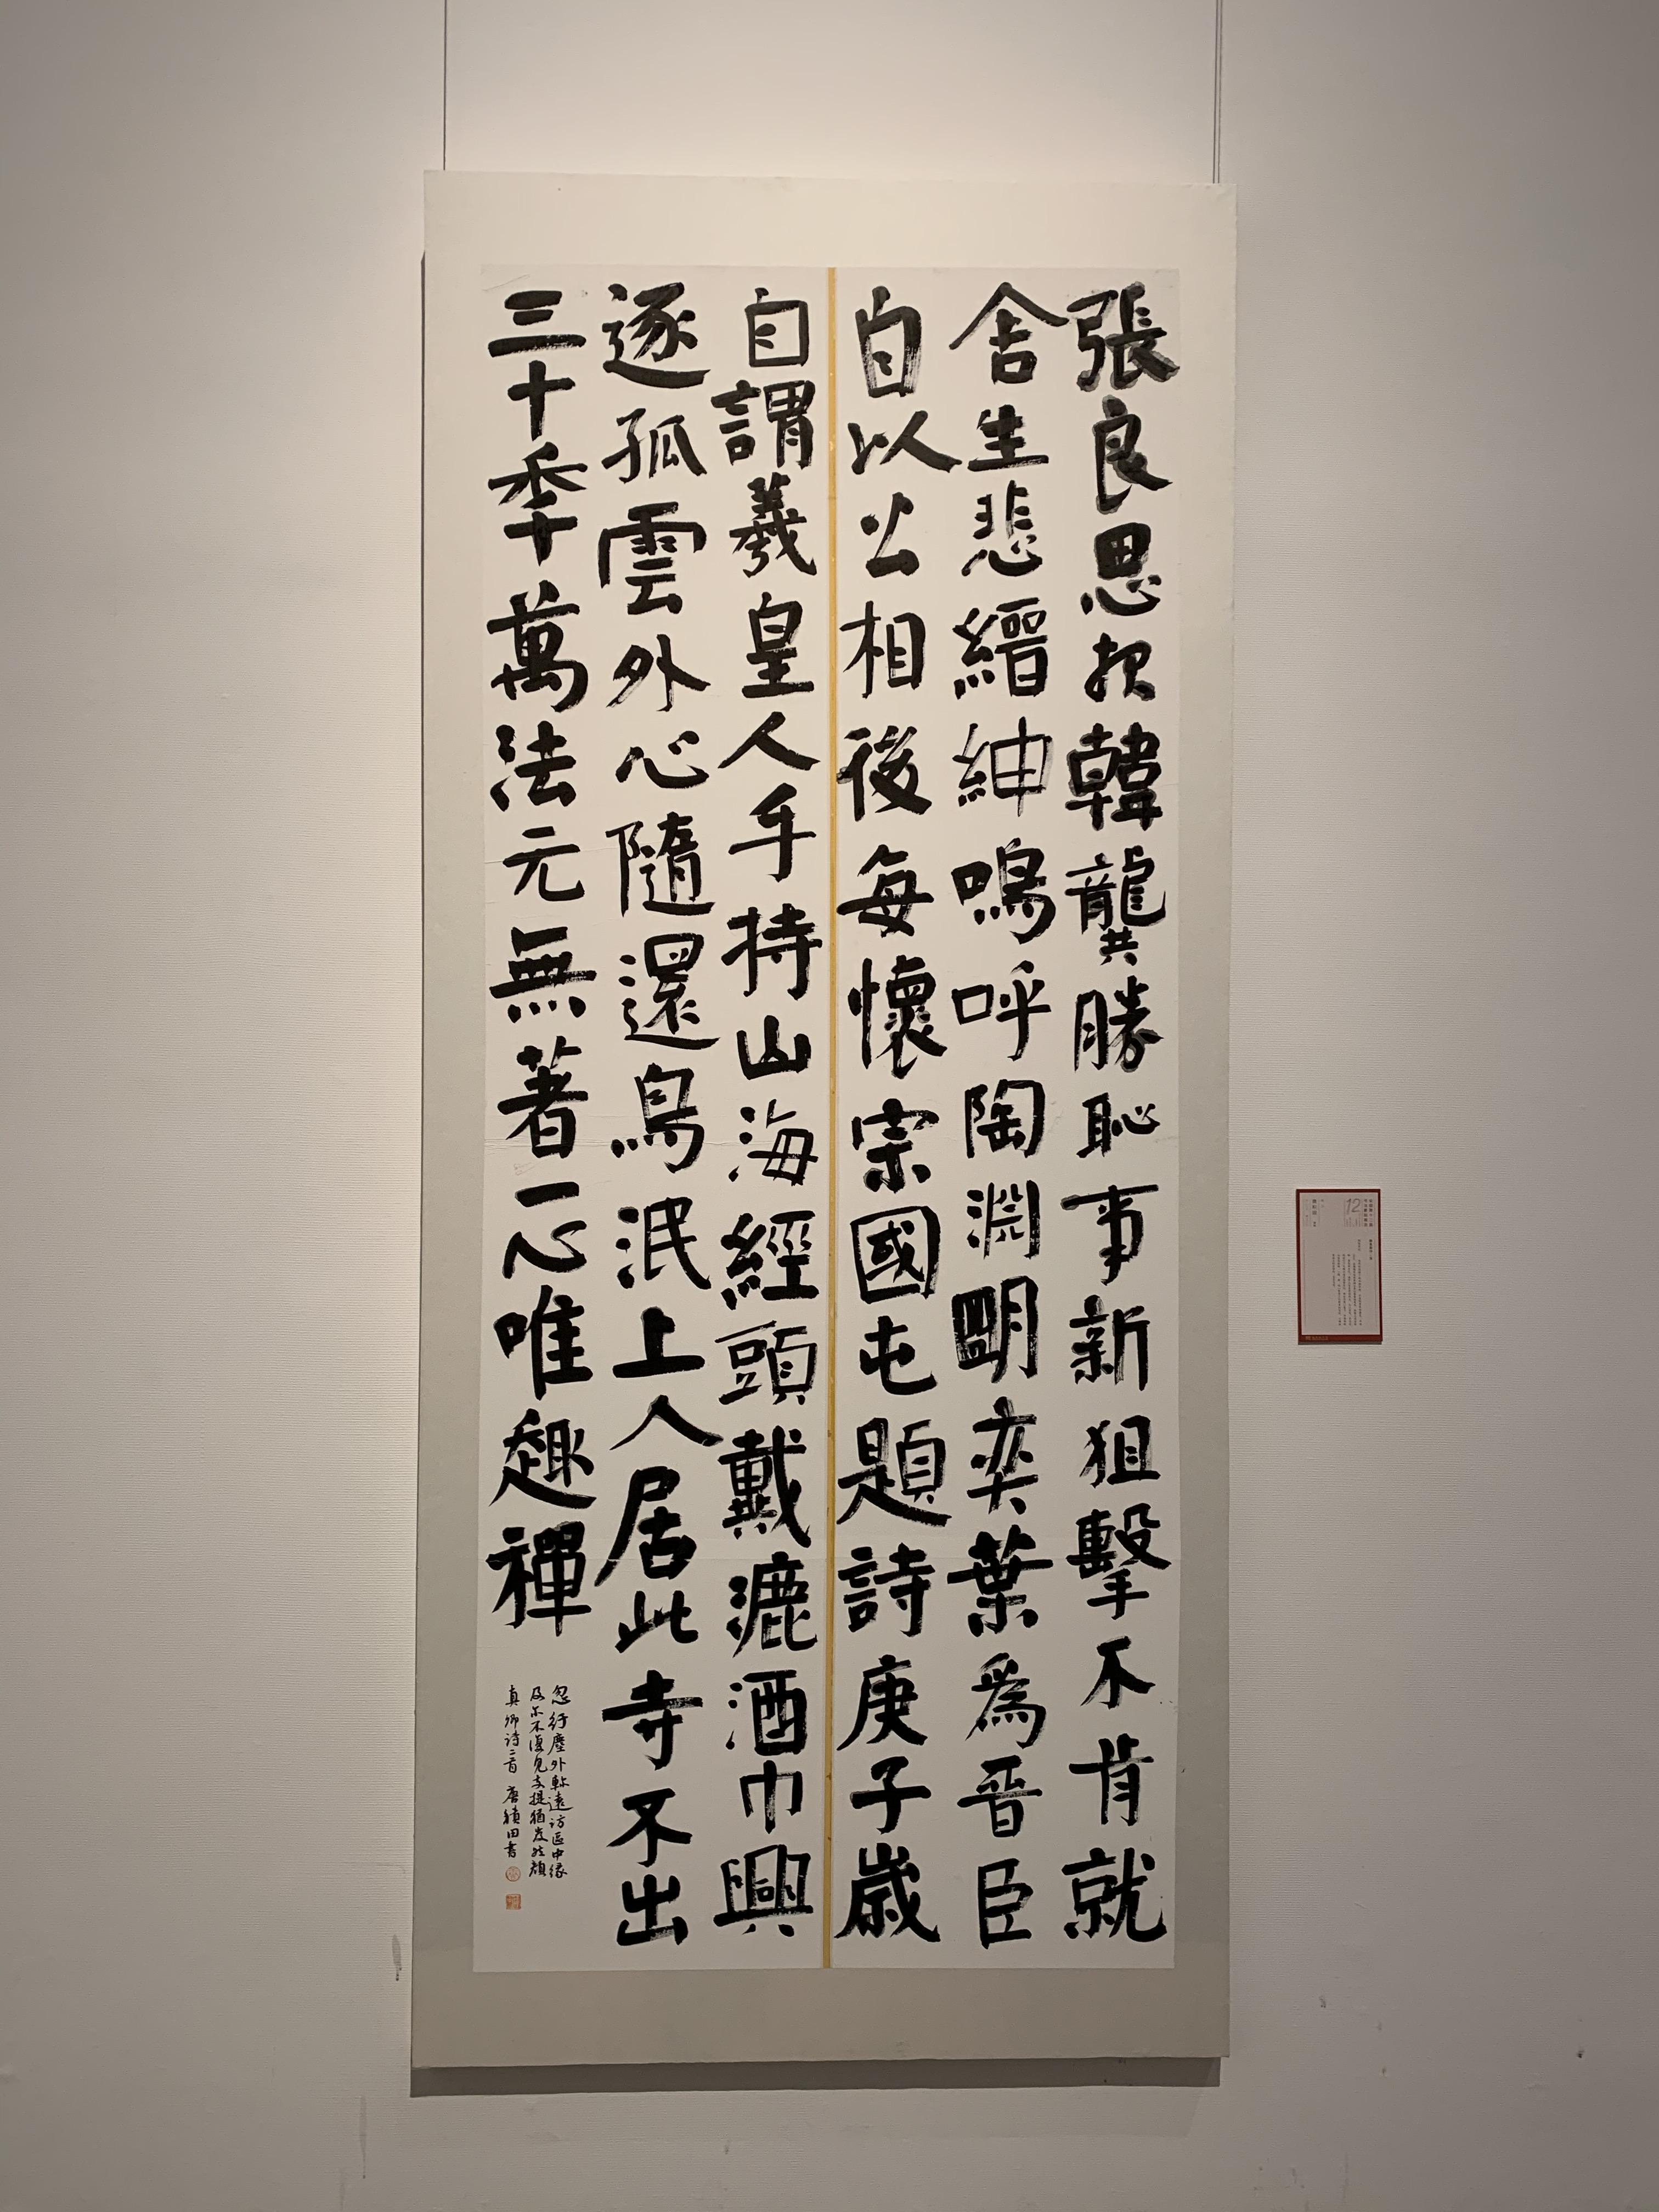 張良思報韓龔勝恥事新狙擊不肯就
舍生悲縉紳嗚呼陶淵明奕葉爲晉臣
自以公相後每懷宗國屯題詩庚子歲
自謂羲皇人手持山海經頭戴漉酒巾興
逐孤雲外心隨還鳥泯上人居此寺不出
三十季萬法元無著一心唯趣禪
忽紆塵外軫遠訪區中緣
及尔不復見支提猶岌然顏
真卿詩二首 唐田書
12